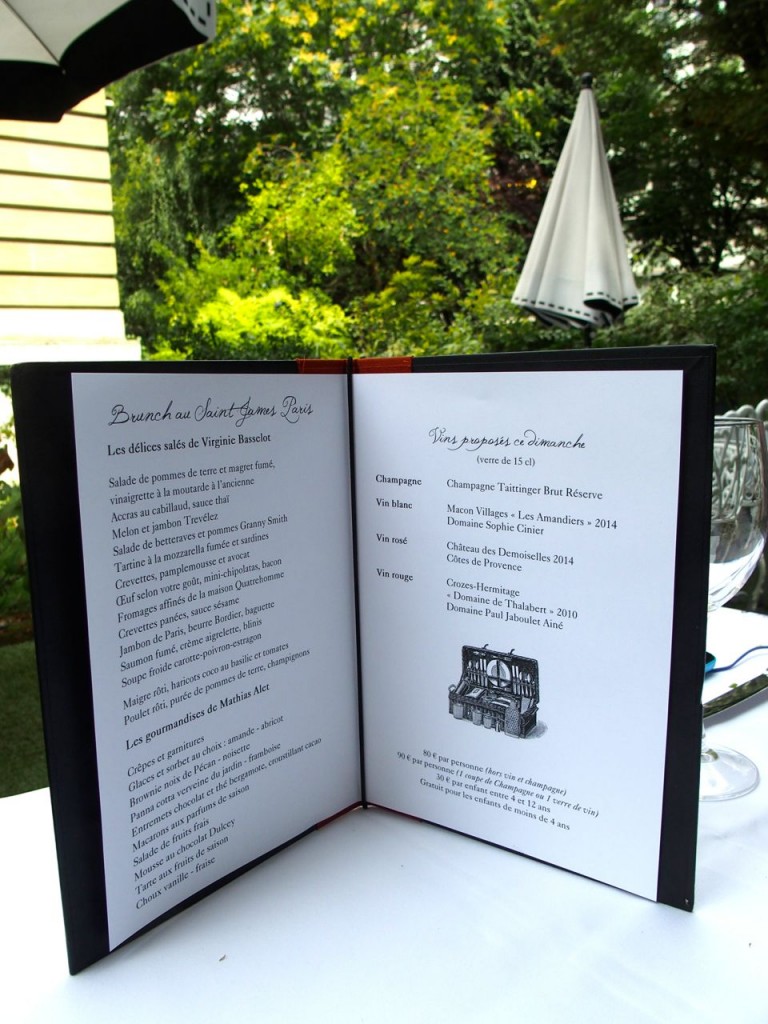 Brunch au Saint James Paris
Les délices salés de Virginie Basselot
Salade de pommes de terre et magret fumé,
vinaigrette à la moutarde à l'ancienne
Accras au cabillaud, sauce thaï
Melon et jambon Trevélez
Salade de betteraves et pommes Granny Smith
Tartine à la mozzarella fumée et sardines
Crevettes, pamplemousse et avocat
Œuf selon votre goût, mini-chipolatas, bacon
Fromages affinés de la maison Quatrehomme
Crevettes panées, sauce sésame
Jambon de Paris, beurre Bordier, baguette
Saumon fumé, crème aigrelette, blinis
Soupe froide carotte-poivron-estragon
Maigre rôti, haricots coco au basilic et tomates
Poulet rôti, purée de pommes de terre, champignons
Les gourmandises de Mathias Alet
Crêpes et garnitures
Glaces et sorbet au choix : amande - abricot
Brownie noix de Pécan - noisette
Panna cotta verveine du jardin - framboise
Entremets chocolat et thé bergamote, croustillant cacao
Macarons aux parfums de saison
Salade de fruits frais
Mousse au chocolat Dulcey
Tarte aux fruits de saison
Choux vanille - fraise
Vins proposés ce dimanche
(verre de 15 cl)
Champagne Champagne Taittinger Brut Réserve
Vin blanc Macon Villages « Les Amandiers » 2014
Domaine Sophie Cinier
Vin rosé Château des Demoiselles 2014
Côtes de Provence
Vin rouge Crozes-Hermitage
« Domaine de Thalabert » 2010
Domaine Paul Jaboulet Ainé
80 € par personne (hors vin et champagne)
90 € par personne (1 coupe de Champagne ou 1 verre de vin)
30 € par enfant entre 4 et 12 ans
Gratuit pour les enfants de moins de 4 ans